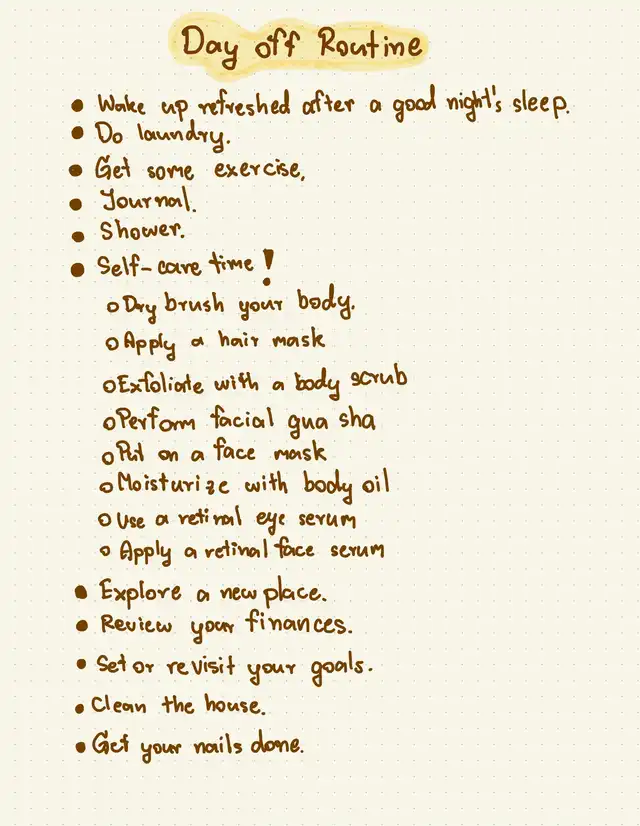 Day off Routine
• Wake up refreshed after a good night's sleep.
• Do laundry.
• Get some exercise.
• Journal.
• Shower.
• Self-care time!
○ Dry brush your body.
○ Apply a hair mask
○ Exfoliate with a body scrub
○ Perform facial gua sha
○ Put on a face mask
○ Moisturize with body oil
○ Use a retinal eye serum
○ Apply a retinal face serum
• Explore a new place.
• Review your finances.
• Set or revisit your goals.
• Clean the house.
• Get your nails done.